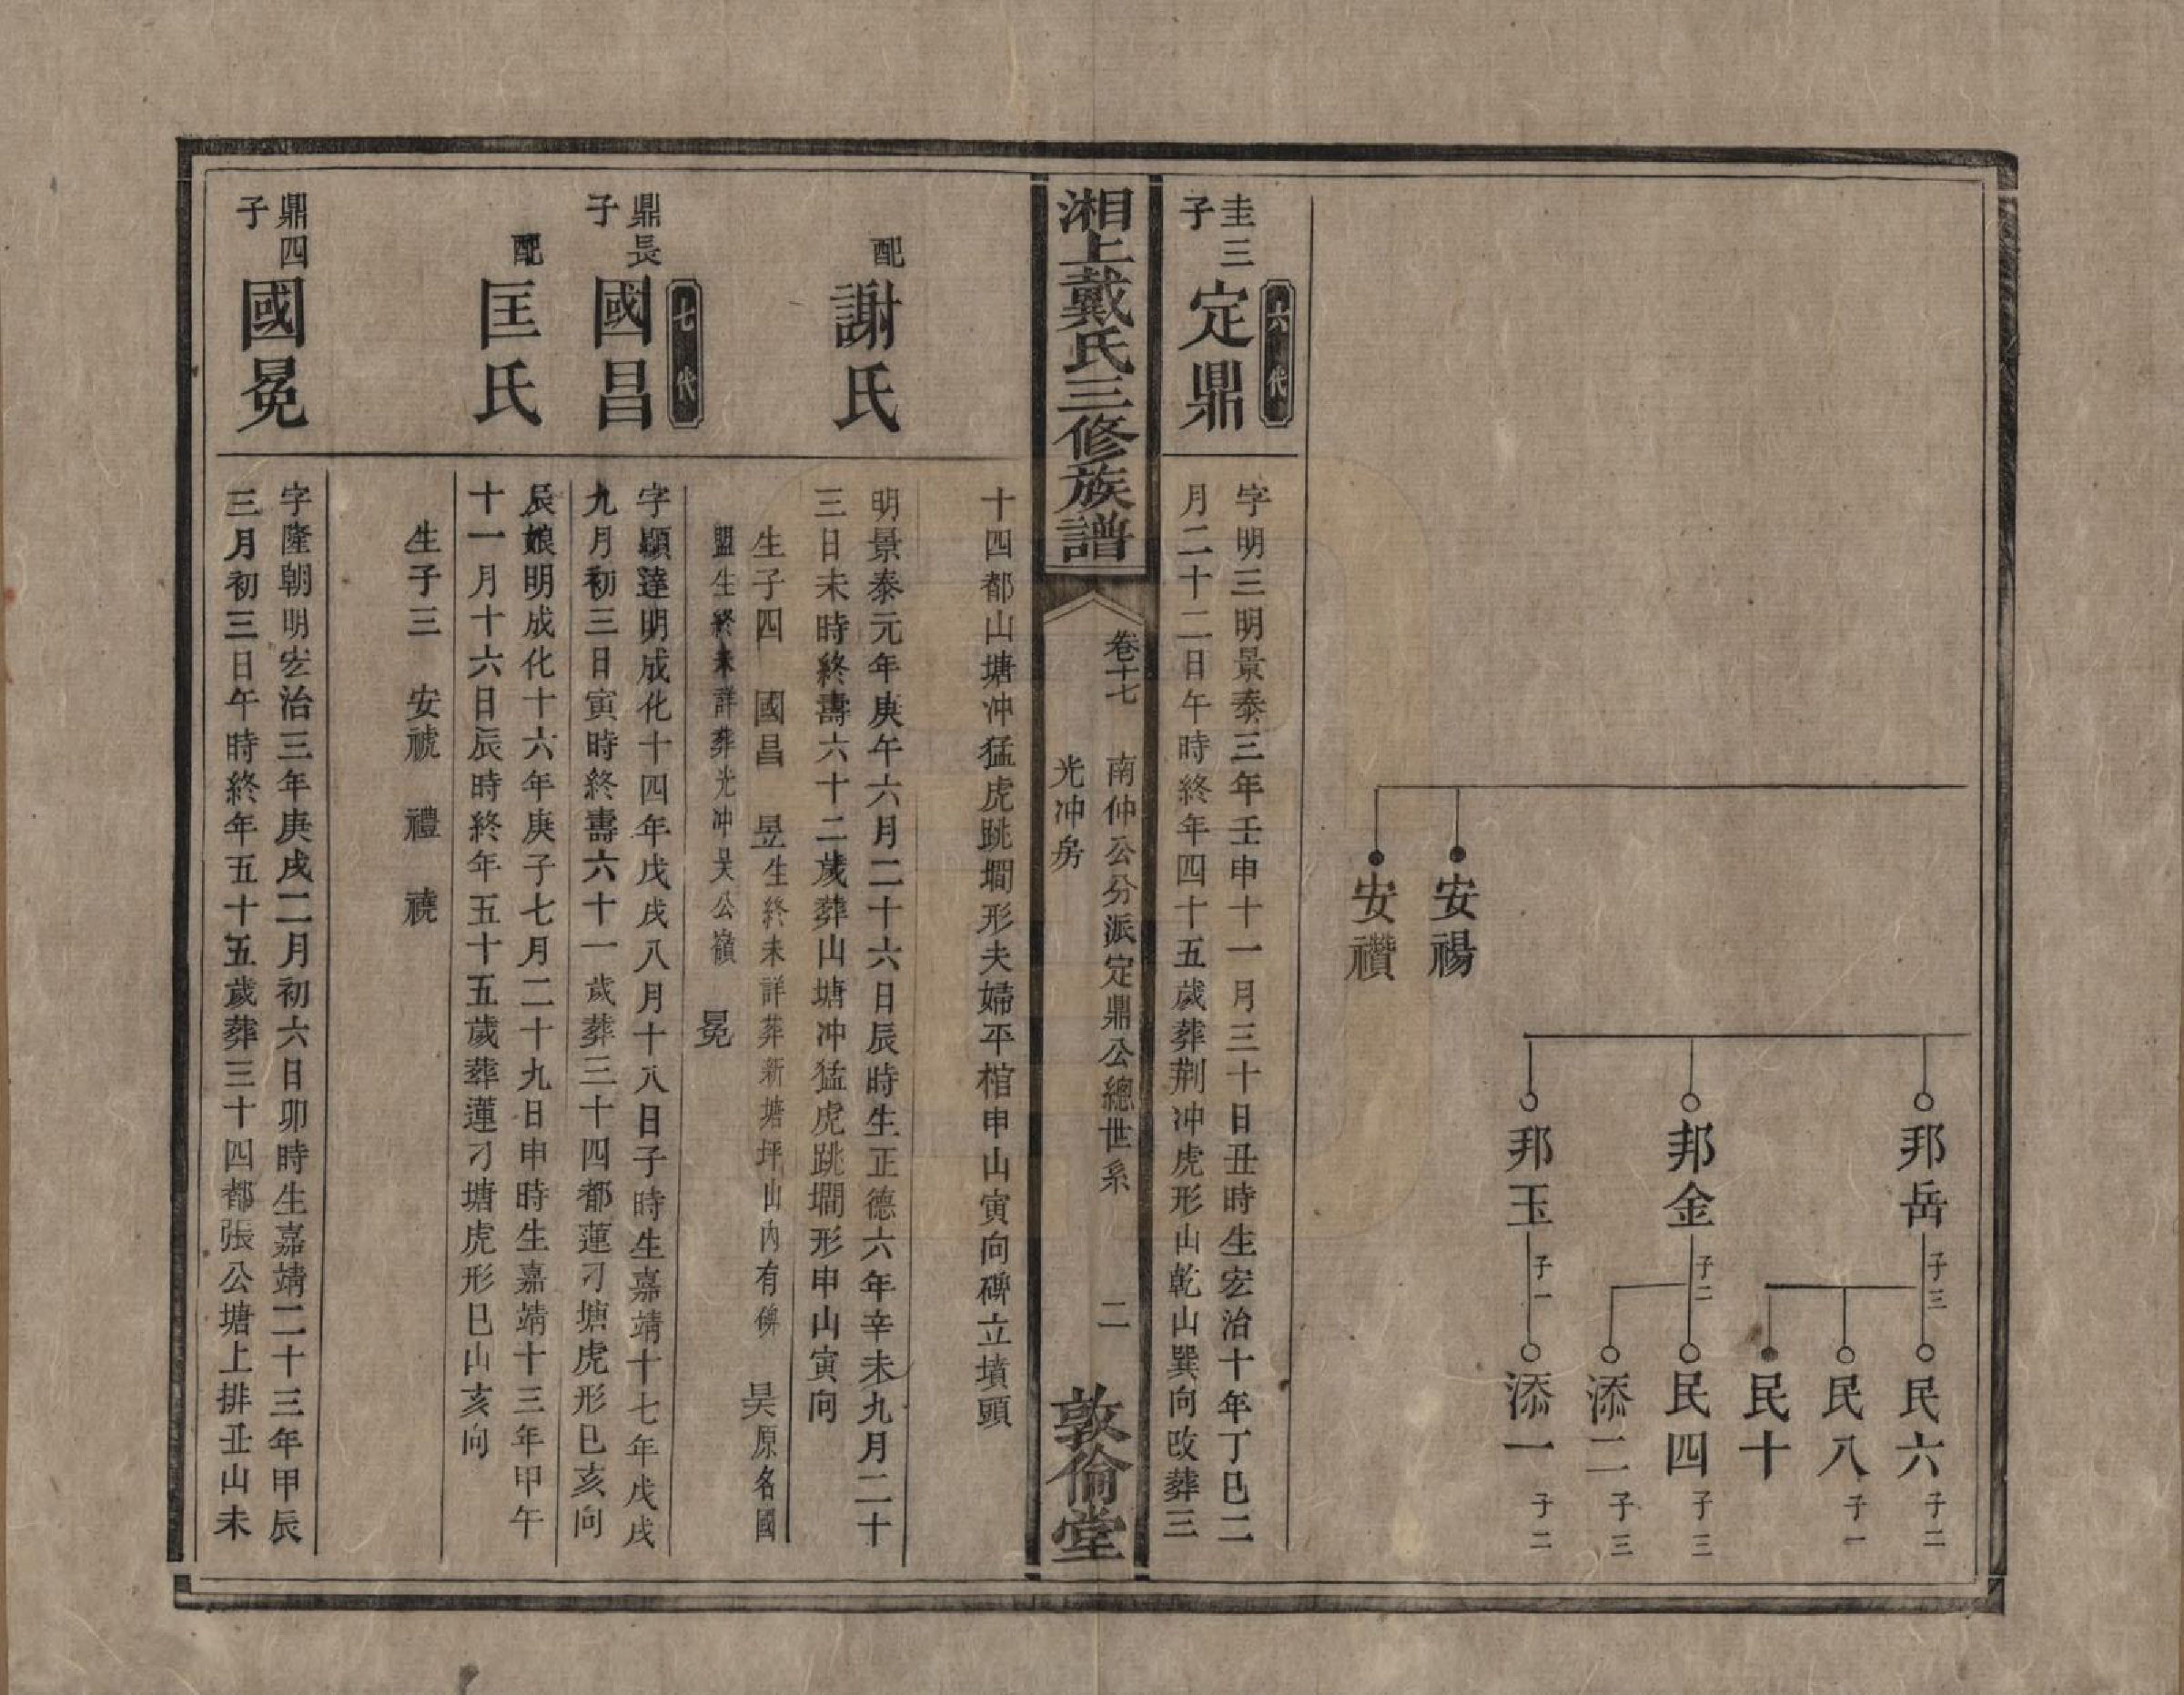 邦岳 子三
民六 子二
民八 子一
民十
邦金 子二
民四 子三
添二 子三
邦玉 子一
添一 子二
安禓
安禶
六代
圭三子 定鼎
字明三明景泰三年壬申十一月三十日丑時生宏治十年丁巳二
月二十二日午時終年四十五歲葬荆冲虎形山乾山巽向改葬三
湘上戴氏三修族譜
卷十七
南仲公分派定鼎公總世系
光冲房
二
敦倫堂
十四都山塘冲猛虎跳墹形夫婦平棺申山寅向碑立墳頭
配 謝氏
明景泰元年庚午六月二十六日辰時生正德六年辛未九月二十
三日未時終壽六十二歲葬山塘冲猛虎跳墹形申山寅向
生子四 國昌 昱生終未詳葬新塘坪山內有碑 昊原名國
盟生終未詳葬光冲吴公嶺 冕
七代
鼎長子 國昌
字顯達明成化十四年戊戌八月十八日子時生嘉靖十七年戊戌
九月初三日寅時終壽六十一歲葬三十四都蓮刁塘虎形巳亥向
配 匡氏
辰娘明成化十六年庚子七月二十九日申時生嘉靖十三年甲午
十一月十六日辰時終年五十五歲葬蓮刁塘虎形巳山亥向
生子三 安禠 禮 禱
鼎四子 國冕
字隆朝明宏治三年庚戌二月初六日卯時生嘉靖二十三年甲辰
三月初三日午時終年五十五歲葬三十四都張公塘上排丑山未